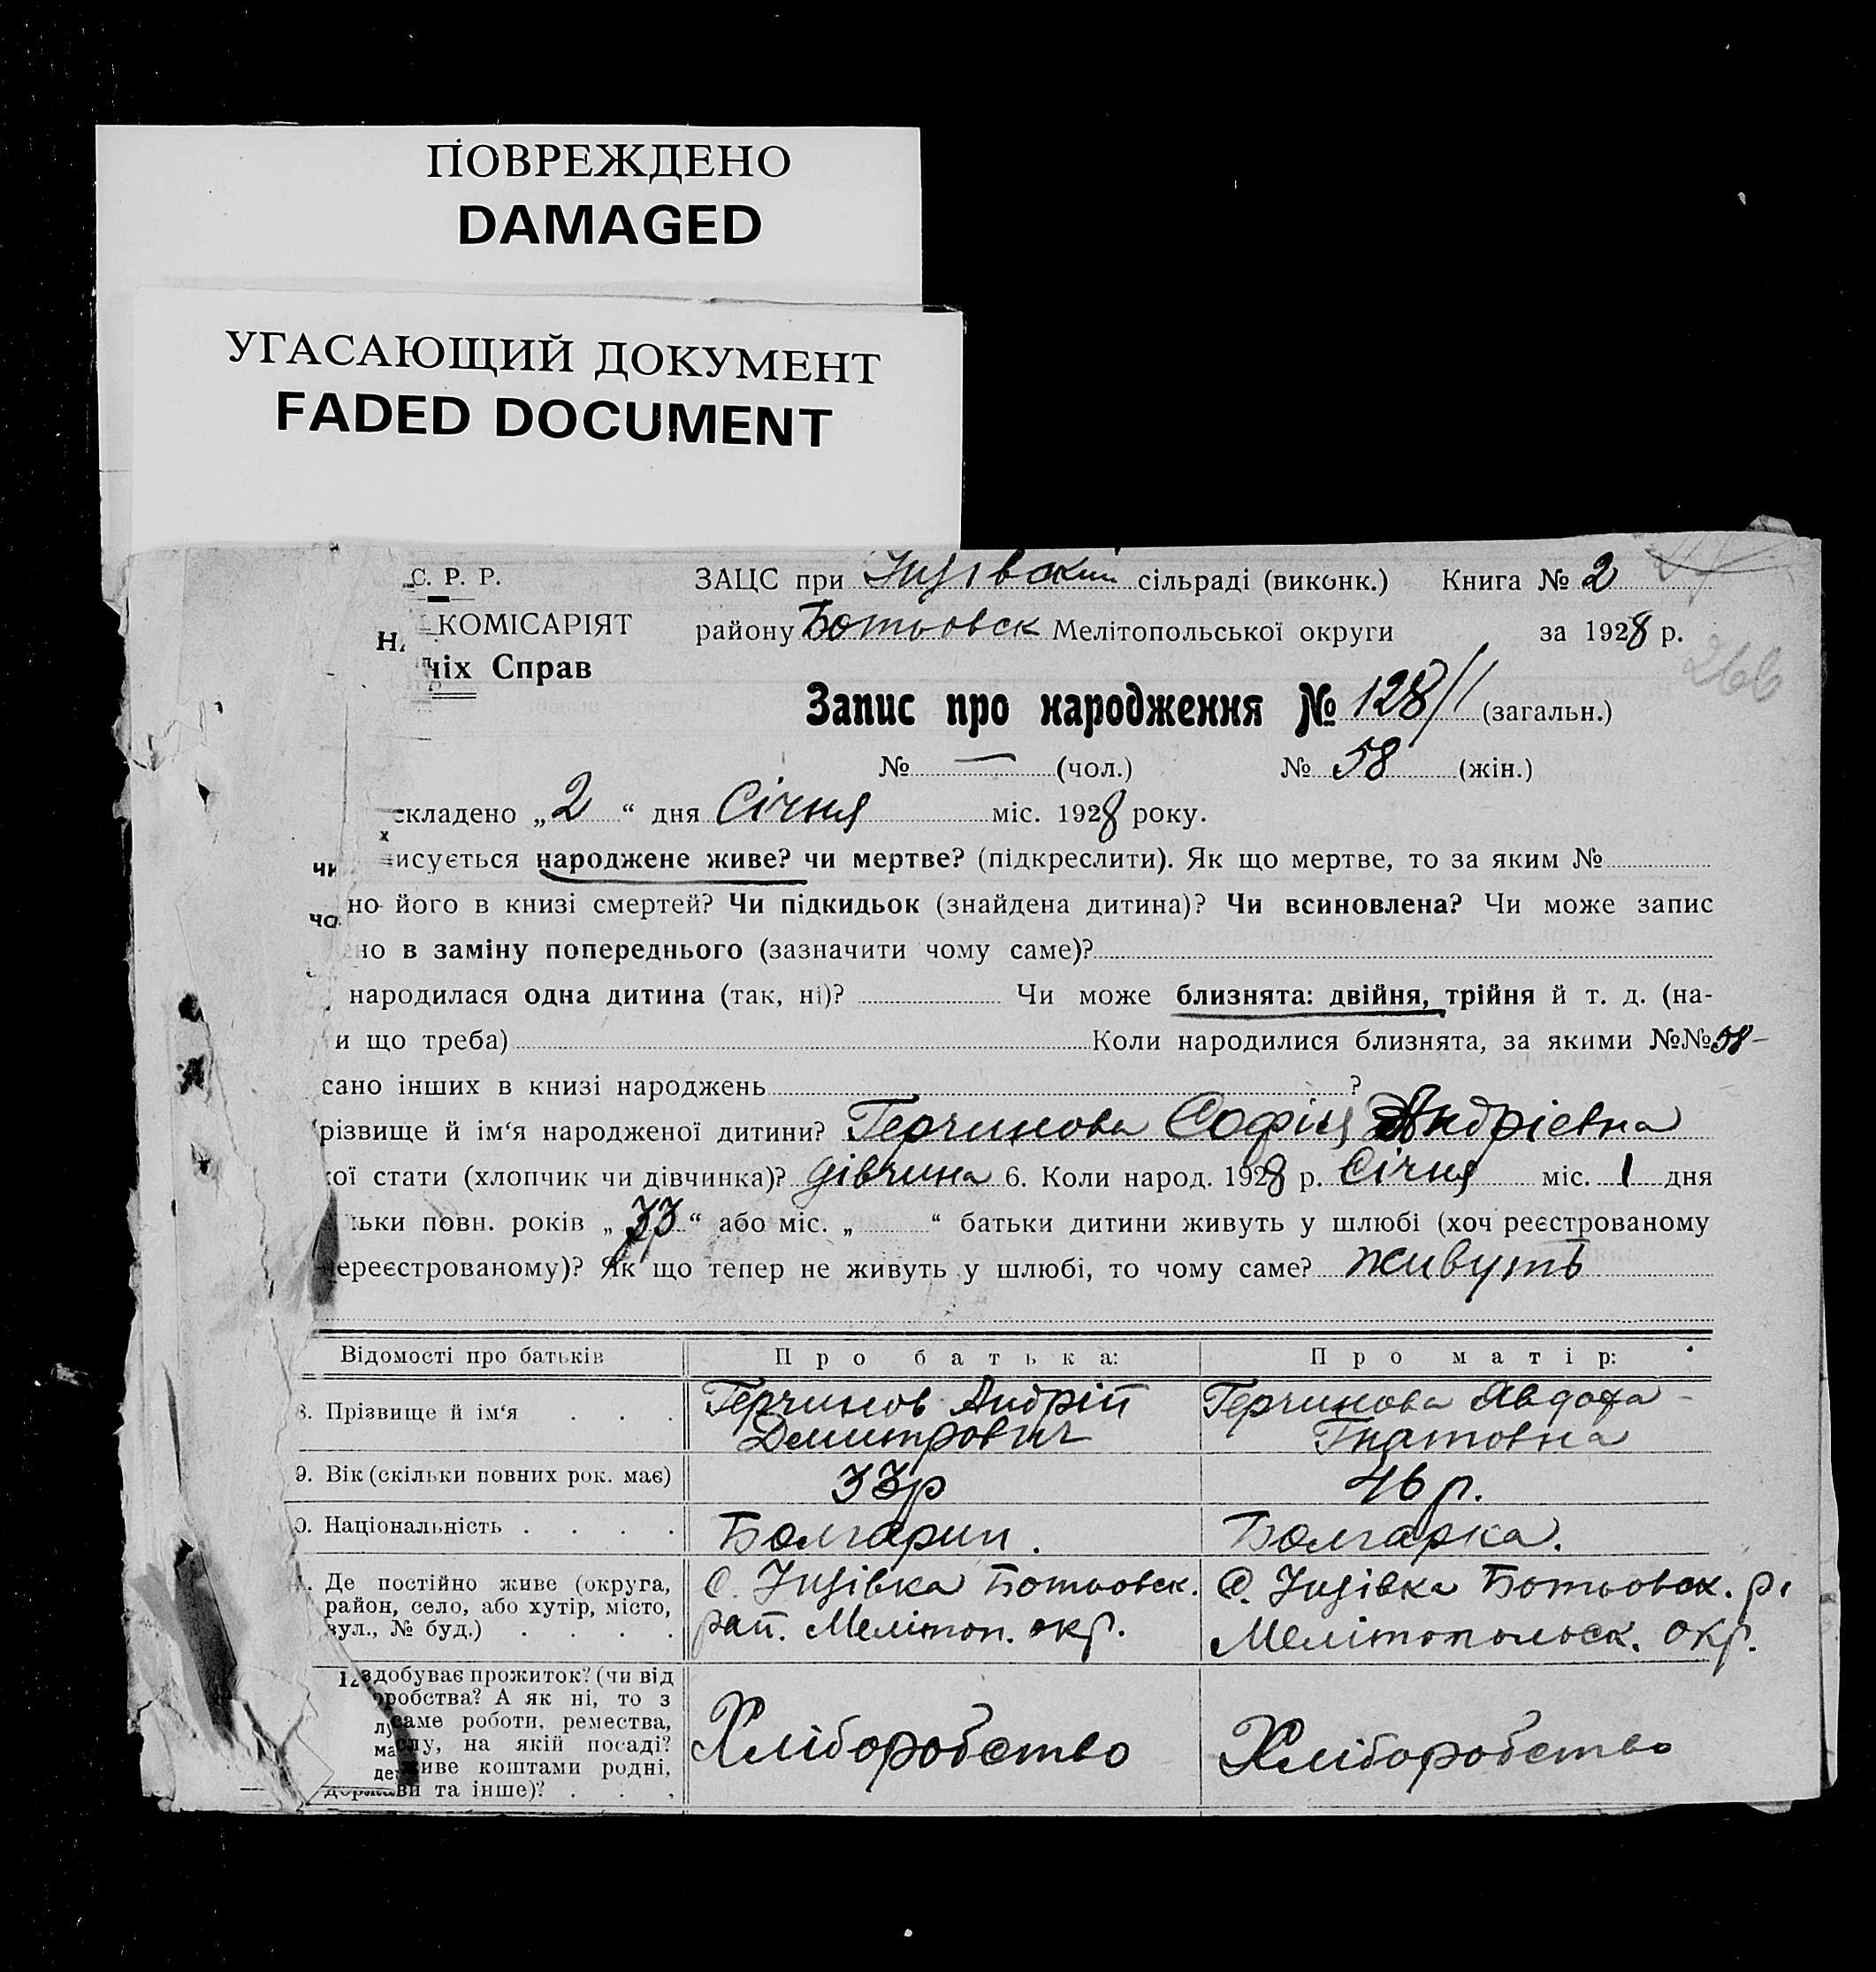 ПОВРЕЖДЕНО
DAMAGED
УГАСАЮЩИЙ ДОКУМЕНТ
FADED DOCUMENT
С. Р. Р.
КОМІСАРІЯТ
Справ
ЗАЦС при сільраді (виконк.) Книга № 2
району Ботьовск Мелітопольської округи за 1928 р.
266
Запис про народження № 128/1 (загальн.)
№ — (чол.) № 58 (жін.)
складено „2“ дня Січня міс. 1928 року.
исується народжене живе? чи мертве? (підкреслити). Як що мертве, то за яким №
но його в книзі смертей? Чи підкидьок (знайдена дитина)? Чи всиновлена? Чи може запис
но в заміну попереднього (зазначити чому саме)?
народилася одна дитина (так, ні)? Чи може близнята: двійня, трійня й т. д. (на-
и що треба) Коли народилися близнята, за якими №№ 58-
сано інших в книзі народжень ?
різвище й ім‘я народженої дитини? Герчинова Софія Андрієвна
ої стати (хлопчик чи дівчинка)? дівчина 6. Коли народ. 1928 р. Січня міс. 1 дня
льки повн. років „33“ або міс. „ “ батьки дитини живуть у шлюбі (хоч реєстрованому
нереєстрованому)? Як що тепер не живуть у шлюбі, то чому саме? живуть
Відомості про батьків Про батька: Про матір:
8. Прізвище й ім‘я . . . Герчинов Андрій Герчинова Явдоха -
Дмитрович Гнатовна
9. Вік (скільки повних рок. має) 33р 46 р.
0. Національність . . . . Болгарин. Болгарка.
Де постійно живе (округа, район, село, або хутір, місто, вул., № буд.) . . . .
С. Інзівка Ботьовск. рай. Мелітоп. окр.
С. Інзівка Ботьовск. р
Мелітопольск. окр.
12 здобуває прожиток? (чи від
робства? А як ні, то з
саме роботи, ремества,
на якій посаді?
живе коштами родні,
держави та інше)? . . .
Хліборобство Хліборобство